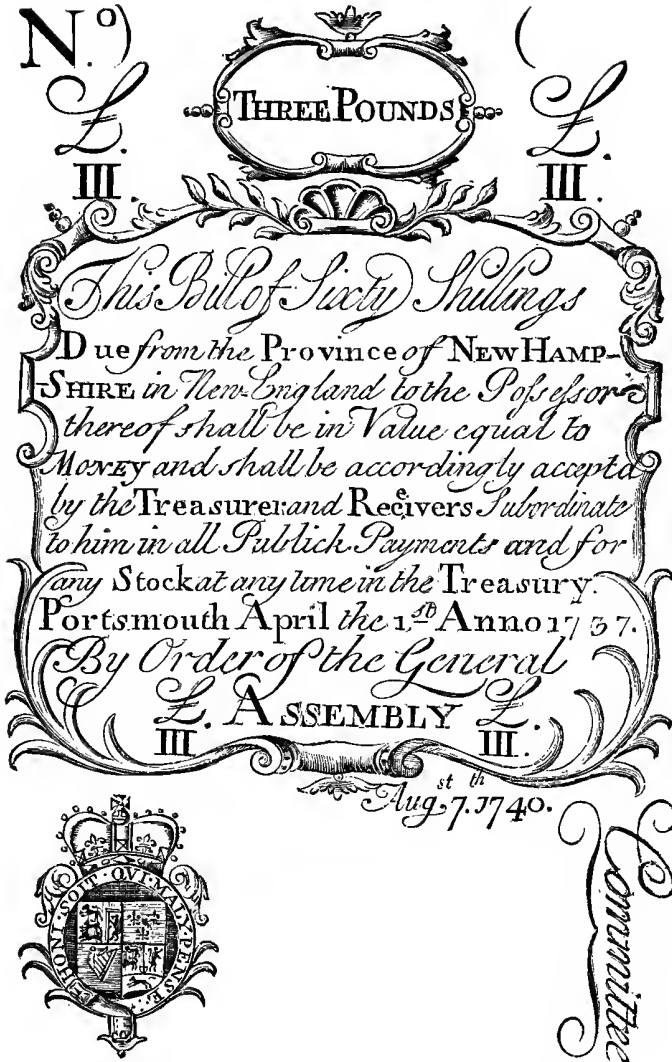 N.º) (
£. THREE POUNDS £.
III. III.
This Bill of Sixty Shillings
Due from the Province of NEW HAMP-
SHIRE in New-England to the Poſseſsor
thereof shall be in Value equal to
MONEY and shall be accordingly accepted
by the Treasurer and Receivers Subordinate
to him in all Publick Payments and for
any Stock at any time in the Treasury.
Portsmouth April the 1st Anno 1737.
By Order of the General
£. ASSEMBLY £.
III III.
Augst 7th. 1740.
HONI·SOIT·QVI·MAL·Y·PENSE·
Committee